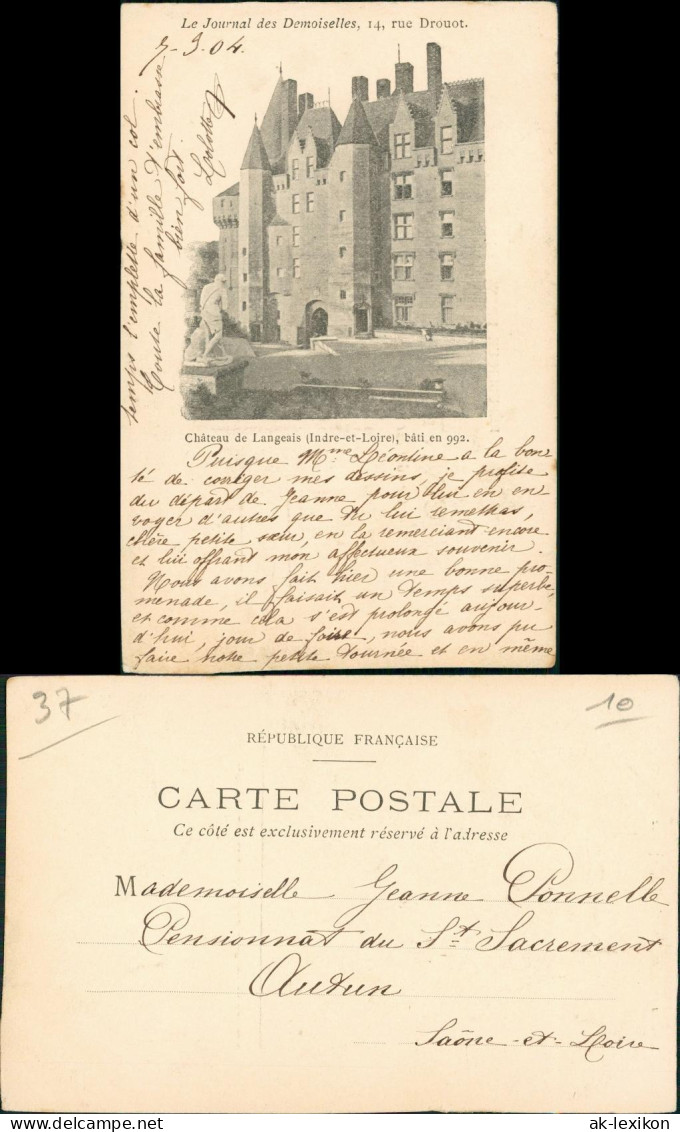 Le Journal des Demoiselles, 14, rue Drouot.
7-3-04.
Château de Langeais (Indre-et-Loire), bâti en 992.
Puisque Mme Léontine a la bon
té de corriger mes dessins, je profite
du départ de Jeanne pour lui en en
voyer d'autres que tu lui remettras,
chère petite sœur, en la remerciant encore
et lui offrant mon affectueux souvenir.
Nous avons fait hier une bonne pro-
menade, il faisait un temps superbe,
et comme cela s'est prolongé aujour-
d'hui, jour de foire, nous avons pu
faire notre petite tournée et en même
temps l'emplette d'un col.
Toute la famille t'embrasse
bien fort.
Lolotte
37
10
RÉPUBLIQUE FRANÇAISE
CARTE POSTALE
Ce côté est exclusivement réservé à l'adresse
Mademoiselle Jeanne Ponnelle
Pensionnat du St Sacrement
Autun
Saône-et-Loire
www.delcampe.net
ak-lexikon